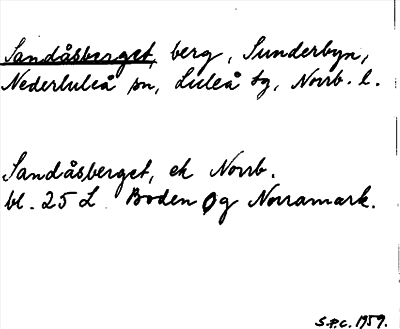 Sandåsberget, berg, Sunderbyn,
Nederluleå sn, Luleå tg, Norrb. l.
Sandåsberget, ek Norrb.
bl. 25 L Boden Og Norramark.
S.P.C. 1959.